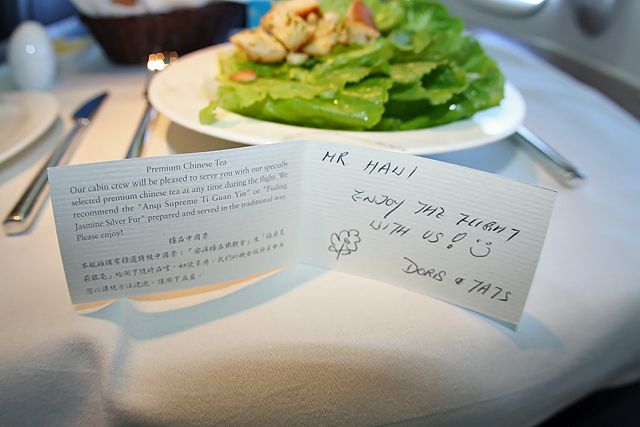 Premium Chinese Tea
Our cabin crew will be pleased to serve you with our specially
selected premium chinese tea at any time during the flight. We
recommend the "Anqi Supreme Ti Guan Yin" or "Fuding
Jasmine Silver Fur" prepared and served in the traditional way.
Please enjoy!
極品中國茶
本航班備有精選特級中國茶：「安溪極品鐵觀音」及「福鼎茉
莉銀毫」給閣下隨時品嘗，如欲享用，我們的機艙服務員會樂
意以傳統方法沏泡，讓閣下品茗。
MR HANI
ENJOY THE FLIGHT
WITH US!
DORIS & TATS